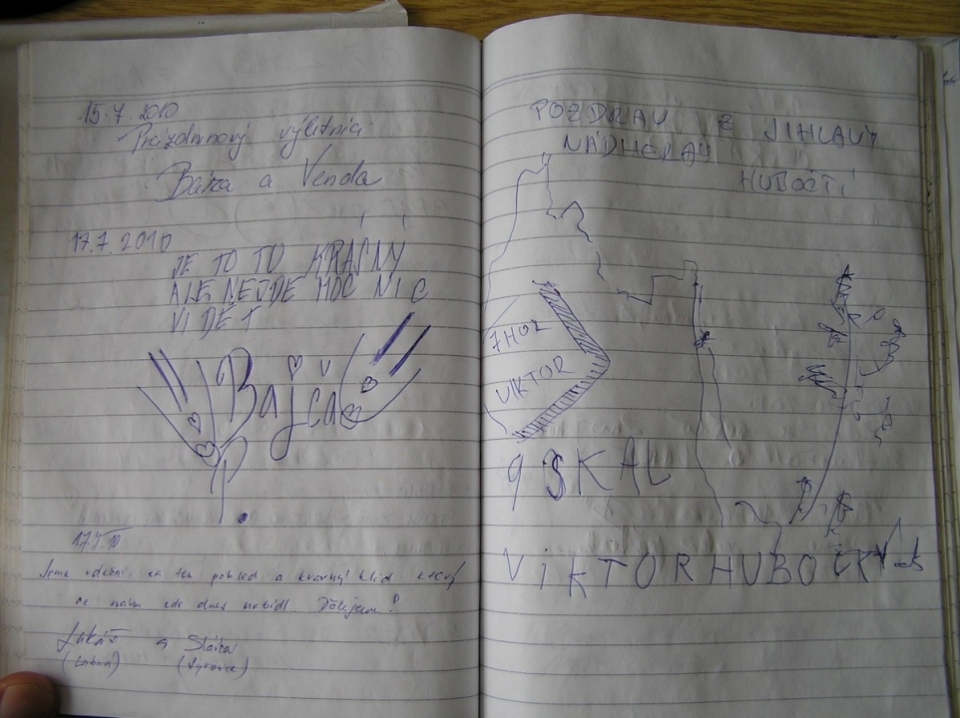 15.7.2010
Prázdninový výletníci
Bára a Venda
17.7.2010
JE TO TO KRÁSNÝ
ALE NEJDE MOC NIC
VIDĚT
Bajča
17.7.10
Jsme vděční za ten pohled a krásný klid který
se nám zde dnes nabídl. Děkujem!
Lukáš a Slávka
POZDRAV Z JIHLAVY
NÁDHERAY
HUBOČTÍ
VIKTOR
9 SKAL
ViKTOR HUBOČKY